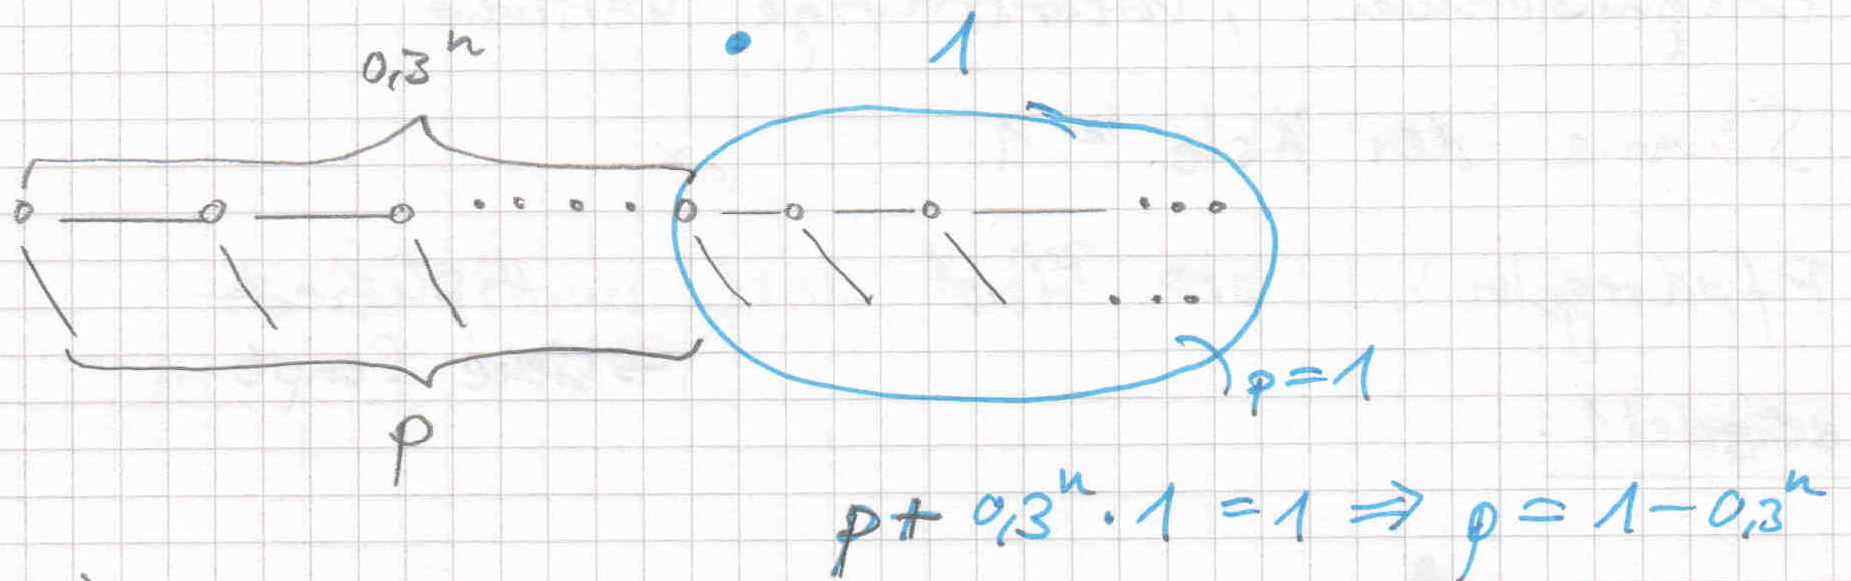 0,3ⁿ · 1
p = 1
p
p + 0,3ⁿ · 1 = 1 ⇒ p = 1 - 0,3ⁿ